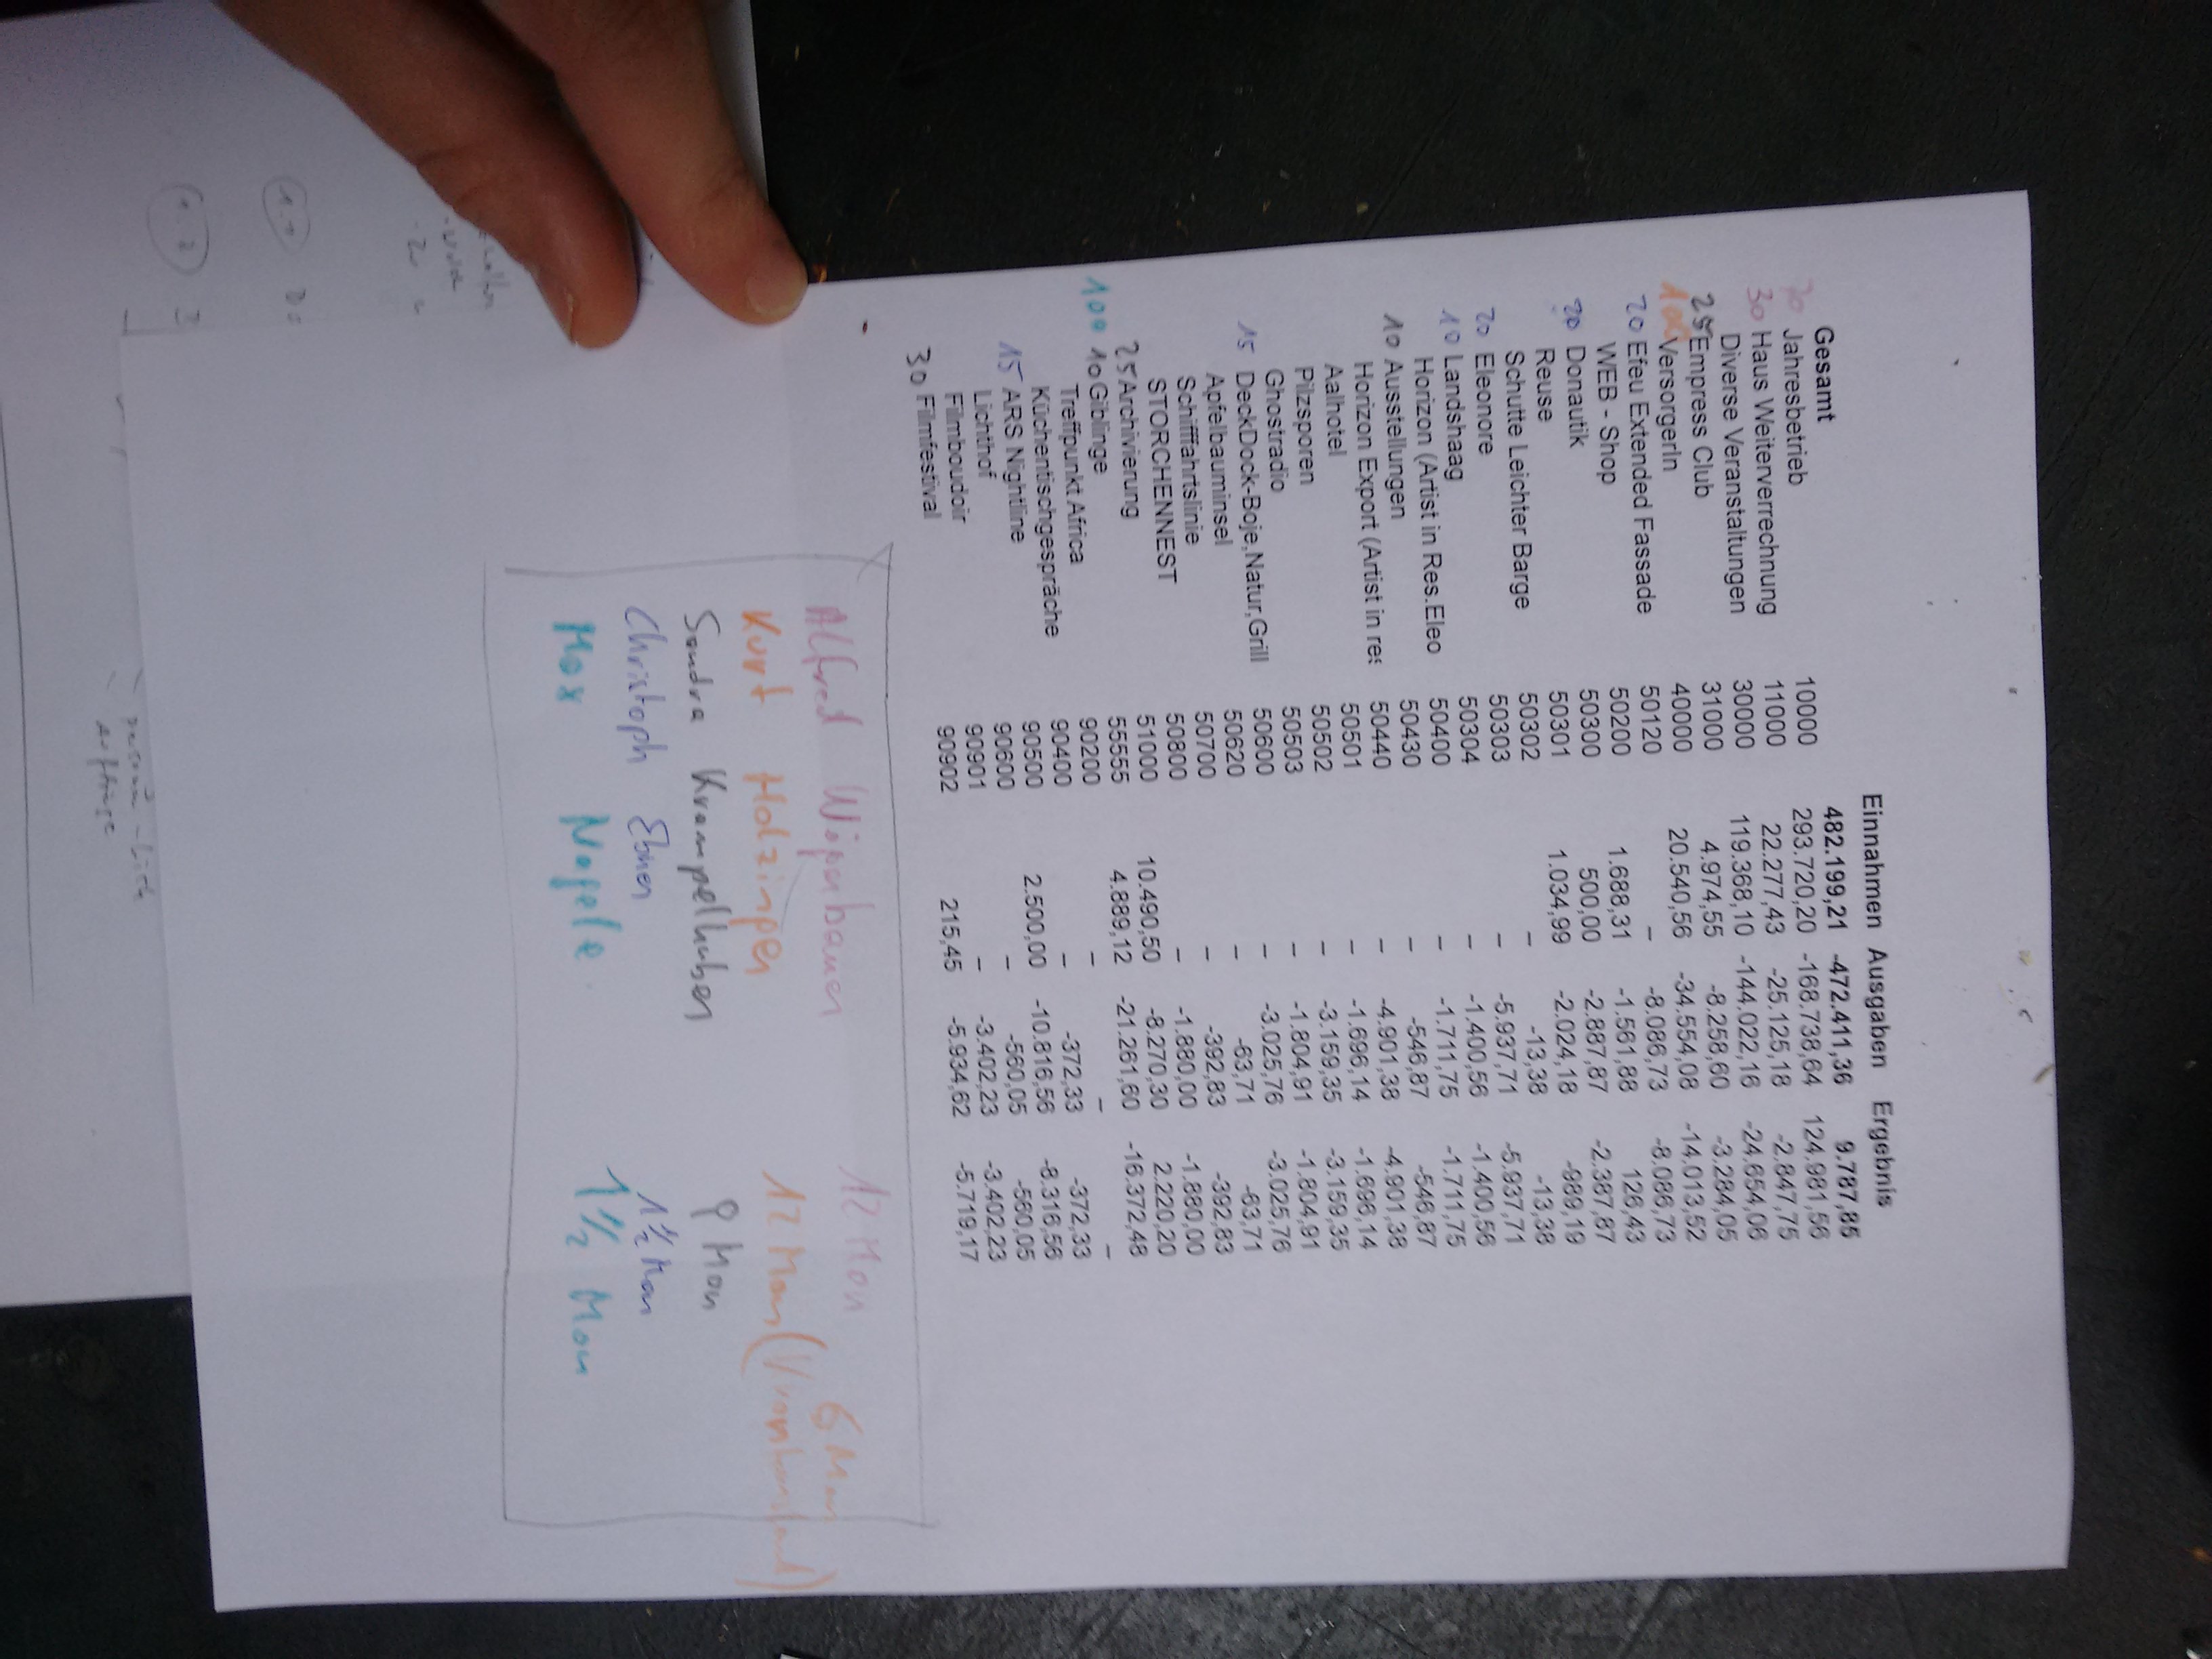 Einnahmen Ausgaben Ergebnis
Gesamt 482.199,21 -472.411,36 9.787,85
30 Jahresbetrieb 10000 293.720,20 -168.738,64 124.981,56
30 Haus Weiterverrechnung 11000 22.277,43 -25.125,18 -2.847,75
Diverse Veranstaltungen 30000 119.368,10 -144.022,16 -24.654,06
25 Empress Club 31000 4.974,55 -8.258,60 -3.284,05
100 VersorgerIn 40000 20.540,56 -34.554,08 -14.013,52
20 Efeu Extended Fassade 50120 – -8.086,73 -8.086,73
WEB - Shop 50200 1.688,31 -1.561,88 126,43
20 Donautik 50300 500,00 -2.887,87 -2.387,87
Reuse 50301 1.034,99 -2.024,18 -989,19
Schutte Leichter Barge 50302 – -13,38 -13,38
20 Eleonore 50303 – -5.937,71 -5.937,71
10 Landshaag 50304 – -1.400,56 -1.400,56
Horizon (Artist in Res.Eleo 50400 – -1.711,75 -1.711,75
10 Ausstellungen 50430 – -546,87 -546,87
Horizon Export (Artist in res 50440 – -4.901,38 -4.901,38
Aalhotel 50501 – -1.696,14 -1.696,14
Pilzsporen 50502 – -3.159,35 -3.159,35
Ghostradio 50503 – -1.804,91 -1.804,91
15 DeckDock-Boje,Natur,Grill 50600 – -3.025,76 -3.025,76
Apfelbauminsel 50620 – -63,71 -63,71
Schifffahrtslinie 50700 – -392,83 -392,83
STORCHENNEST 50800 – -1.880,00 -1.880,00
25 Archivierung 51000 10.490,50 -8.270,30 2.220,20
100 10 Giblinge 55555 4.889,12 -21.261,60 -16.372,48
Treffpunkt Africa 90200 – – –
Küchentischgespräche 90400 – -372,33 -372,33
15 ARS Nightline 90500 2.500,00 -10.816,56 -8.316,56
Lichthof 90600 – -560,05 -560,05
Filmboudoir 90901 – -3.402,23 -3.402,23
30 Filmfestival 90902 215,45 -5.934,62 -5.719,17
Alfred 12 Mon 6 Mon
Kurt Holzinger 12 Mon (Vronihofland)
Sandra Krampelhuber 9 Mon
Christoph Ebner 1 1/2 Mon
Max Nagele 1 1/2 Mon